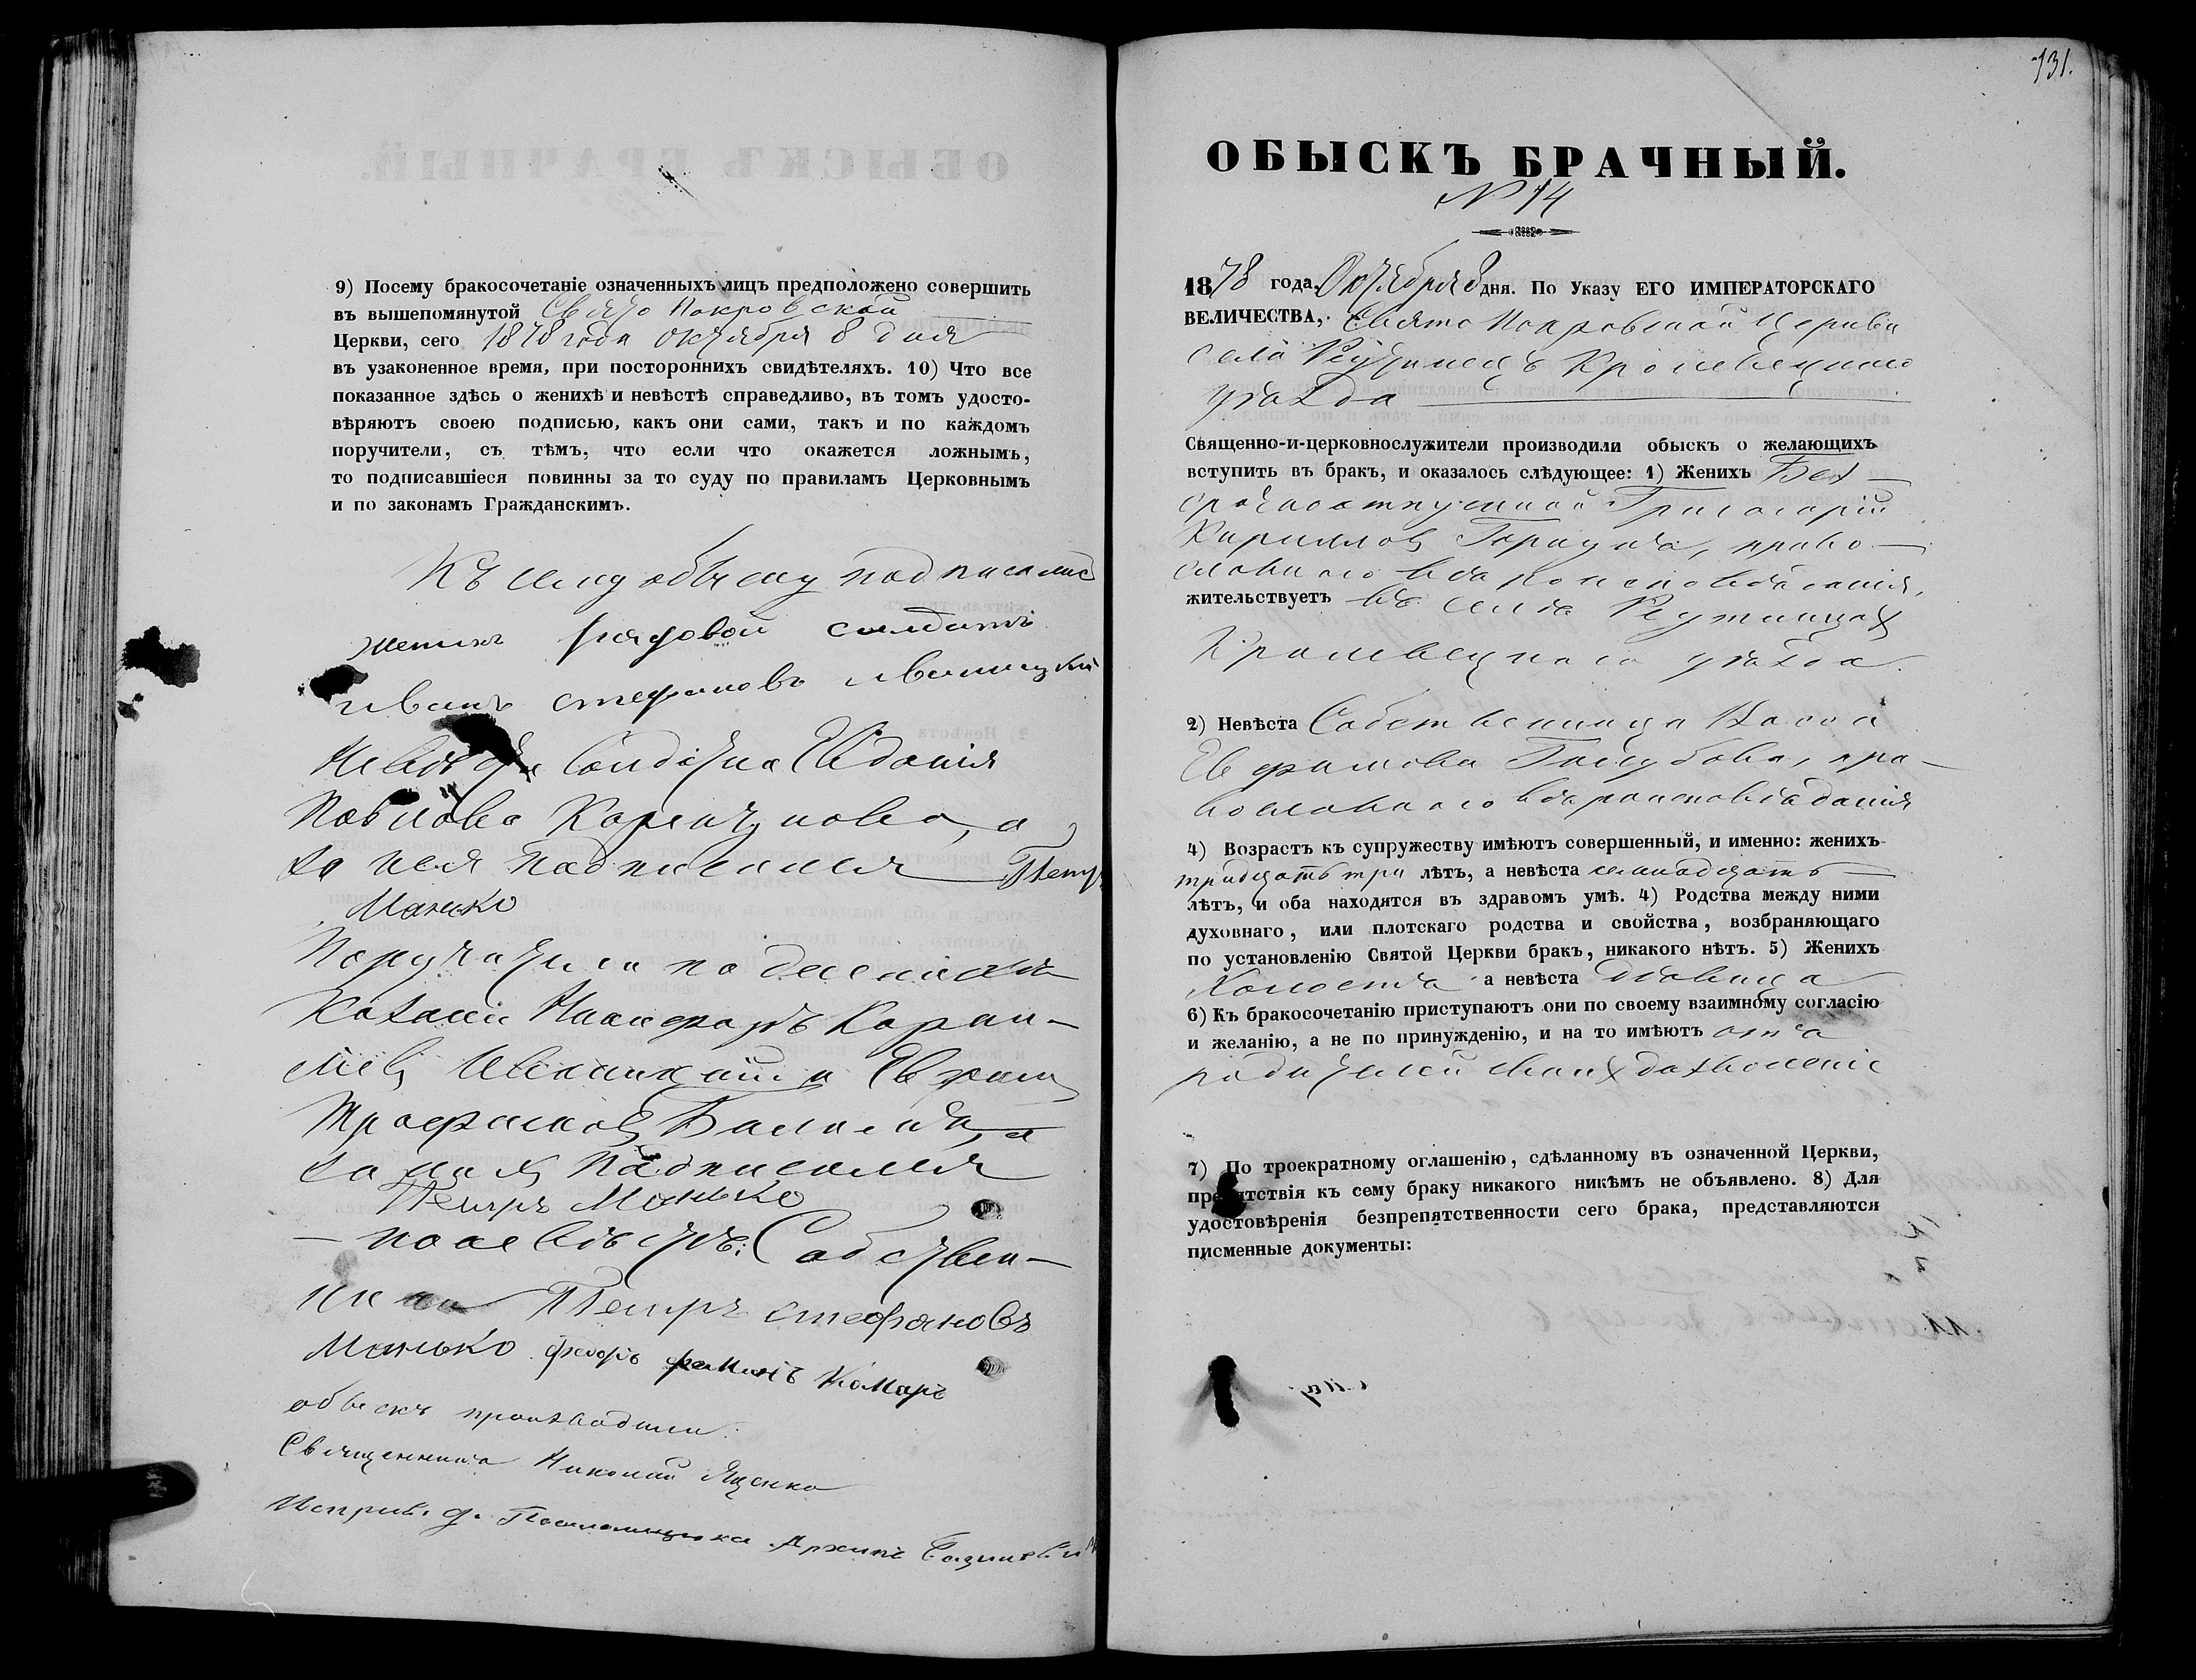 9) Посему бракосочетаніе означенныхъ лицъ предположено совершить
въ вышепомянутой Свято Покровской
Церкви, сего 1878 года октября 8 дня
въ узаконенное время, при постороннихъ свидѣтеляхъ. 10) Что все
показанное здѣсь о женихѣ и невѣстѣ справедливо, въ томъ удосто-
вѣряютъ своею подписью, какъ они сами, такъ и по каждомъ
поручители, съ тѣмъ, что если что окажется ложнымъ,
то подписавшіеся повинны за то суду по правиламъ Церковнымъ
и по законамъ Гражданскимъ.
Къ сему обыску подписались
женихъ рядовой солдатъ
иванъ стефановъ
Невѣста Евдокія
Павлова а
за нея подписался Петръ
Манько
Поручители по женихѣ
Козаки
Евфим
Трофимовъ а
за нихъ подписался
Петръ Манько
— по невѣстѣ: Собствен-
ники Петръ стефановъ
Манько федоръ Комаръ
обыскъ производили
Священникъ Николай Яценко
Исправ. д. Псаломщика
131.
ОБЫСКЪ БРАЧНЫЙ.
№ 14
1878 года, Октября 8 дня. По Указу ЕГО ИМПЕРАТОРСКАГО
ВЕЛИЧЕСТВА, Свято Покровской Церкви
села Реутинецъ Кролевецкаго
уѣзда
Священно-и-церковнослужители производили обыскъ о желающихъ
вступить въ бракъ, и оказалось слѣдующее: 1) Женихъ Без-
срочноотпускной Григорій
Кириловъ право-
славнаго вѣроисповѣданія,
жительствуетъ въ селѣ Реутинцахъ
Кролевецкаго уѣзда.
2) Невѣста Собственница Васса
Евфимова Голубова, пра-
вославнаго вѣроисповѣданія
4) Возрастъ къ супружеству имѣютъ совершенный, и именно: женихъ
тридцать три лѣтъ, а невѣста семнадцать
лѣтъ, и оба находятся въ здравомъ умѣ. 4) Родства между ними
духовнаго, или плотскаго родства и свойства, возбраняющаго
по установленію Святой Церкви бракъ, никакого нѣтъ. 5) Женихъ
Холостъ а невѣста Дѣвица
6) Къ бракосочетанію приступаютъ они по своему взаимному согласію
и желанію, а не по принужденію, и на то имѣютъ отъ
родителей своихъ дозволеніе
7) По троекратному оглашенію, сдѣланному въ означенной Церкви,
препятствія къ сему браку никакого никѣмъ не объявлено. 8) Для
удостовѣренія безпрепятственности сего брака, представляются
писменные документы: